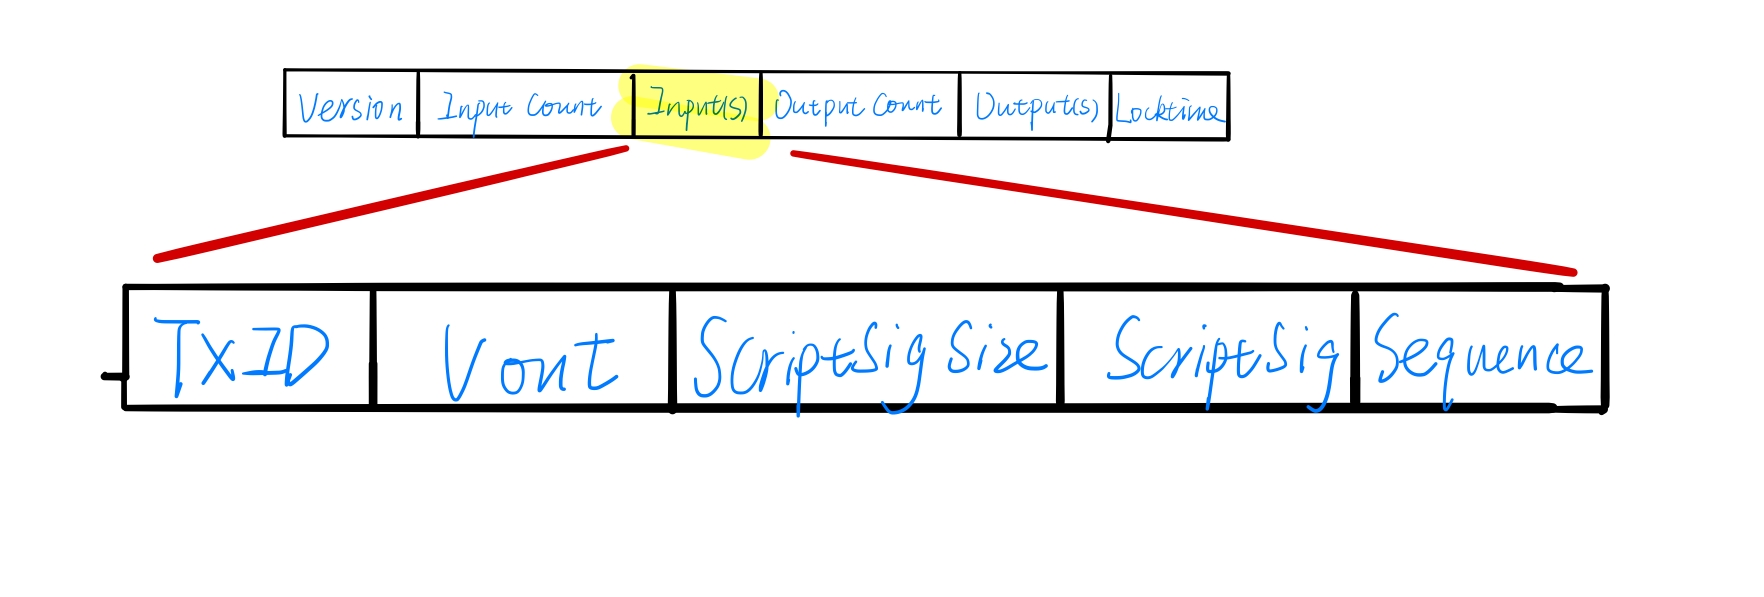 Version Input Count Input(s) Output Count Output(s) Locktime
TxID Vout ScriptSig Size ScriptSig Sequence